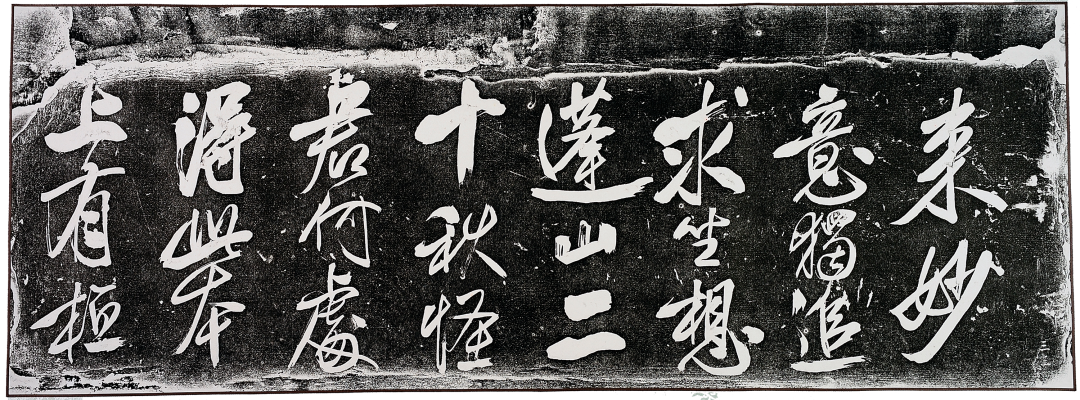 來妙
意獨追
求坐想
蓬山二
十秋怪
君何處
得此本
上有桓